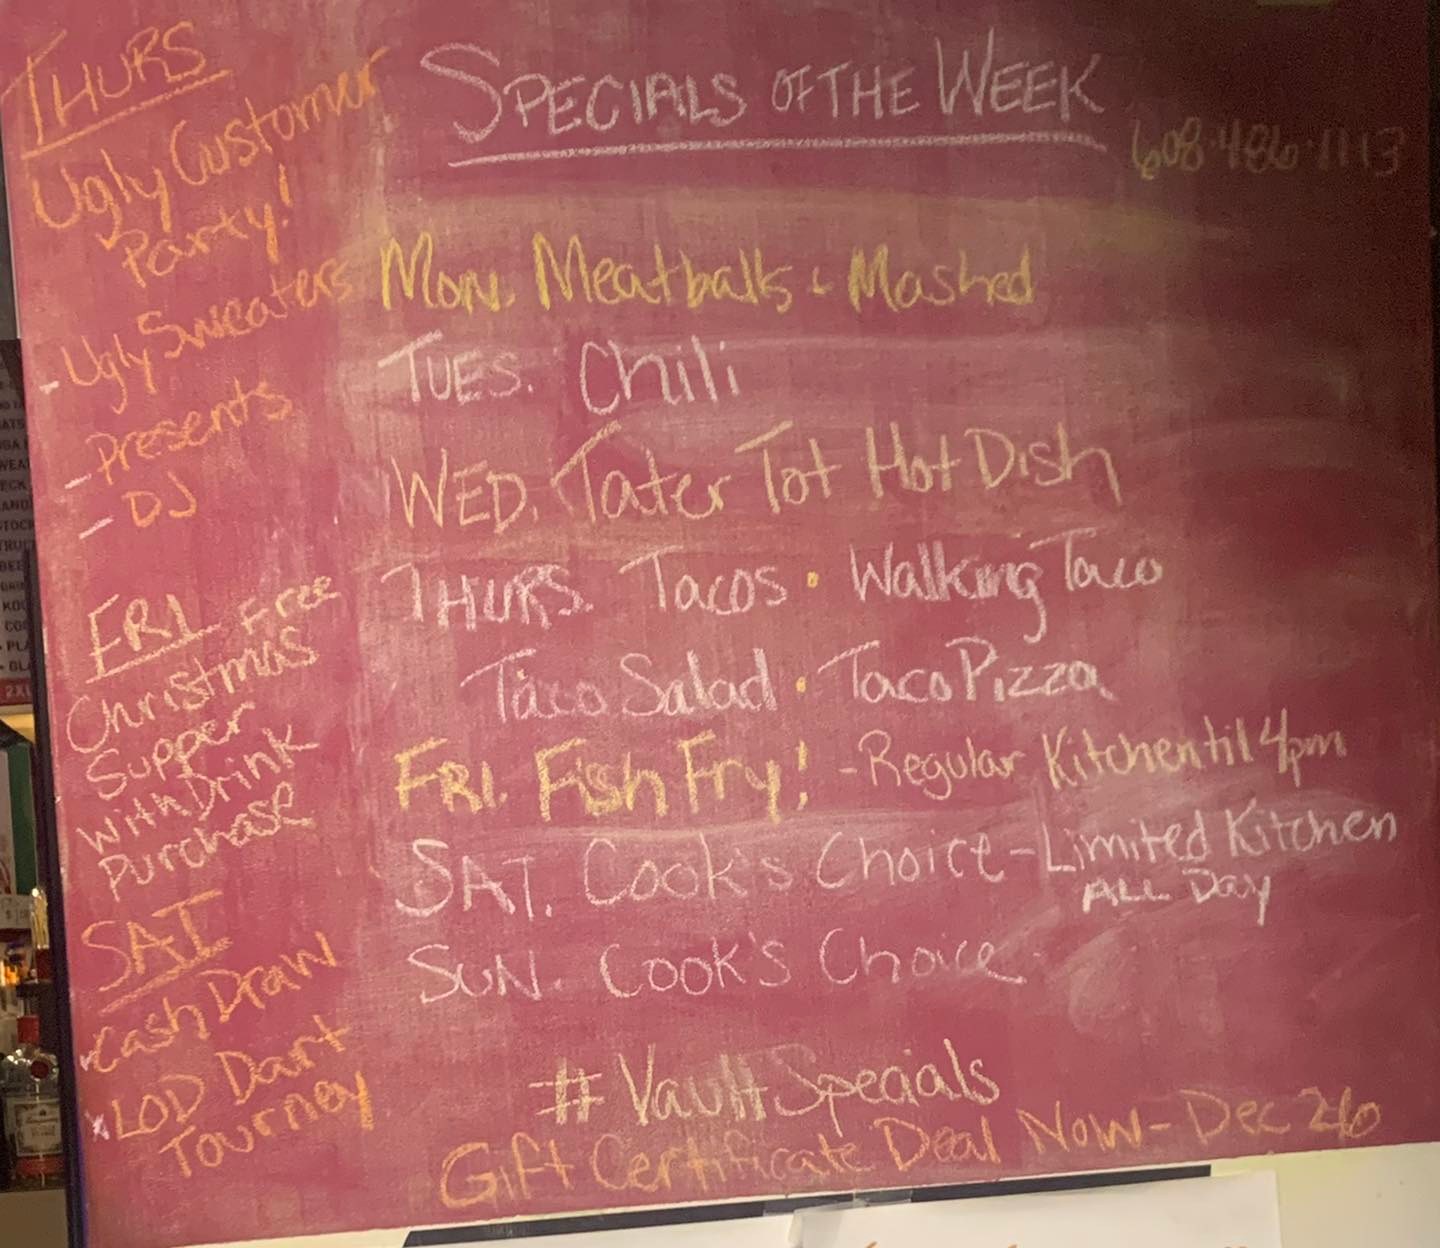 THURS
Ugly Customer
Party!
- Ugly Sweaters
- Presents
- DJ
FRI Free
Christmas
Supper
With Drink
Purchase
SAT
Cash Draw
x LOD Dart
Tourney
SPECIALS OF THE WEEK
608·486·1113
MON. Meatballs & Mashed
TUES. Chili
WED. Tater Tot Hot Dish
THURS. Tacos · Walking Taco
Taco Salad · Taco Pizza
FRI. Fish Fry! - Regular Kitchen til 4pm
SAT. Cook's Choice - Limited Kitchen
ALL Day
SUN. Cook's Choice
#VaultSpecials
Gift Certificate Deal Now - Dec 26
2XL